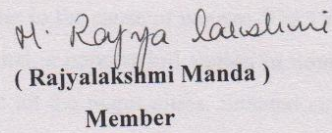 M. Rajya lakshmi
( Rajyalakshmi Manda )
Member